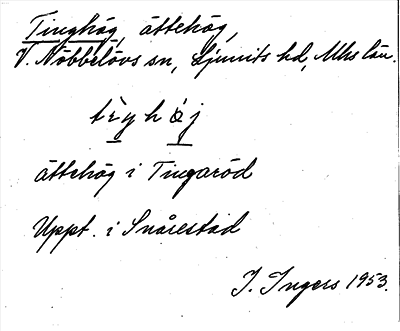 Tinghög, ättehög,
V. Nöbbelövs sn, Ljunits hd, Mhs län.
tìŋhǿj
ättehög i Tingaröd
Uppt. i Snårestad
I. Ingers 1953.